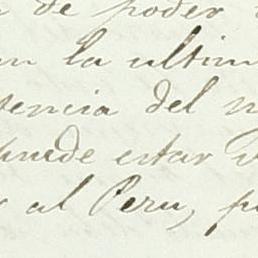 de poder
la ultim
tencia del n
puede estar v
al Peru, p